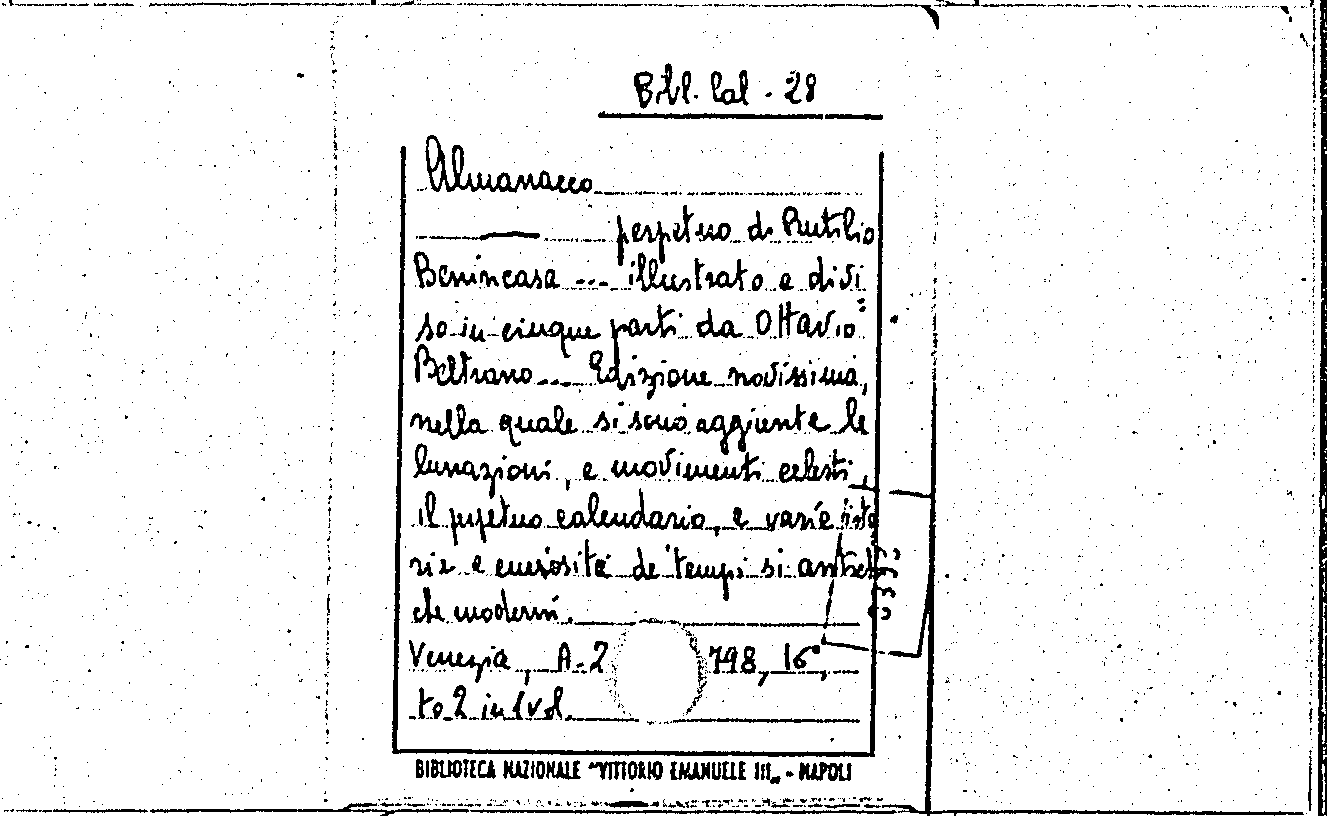 Bibl. Cal - 28
Almanacco
perpetuo di Rutilio
Benincasa --- illustrato e divi
so in cinque parti da Ottavio
Beltrano --- Edizione novissima,
nella quale si sono aggiunte le
lunazioni, e movimenti celesti,
il perpetuo calendario, e varie isto
rie e curiosità de' tempi si antichi
che moderni.
Venezia, A. Z 798, 16°,
to 2 in 1 vol.
BIBLIOTECA NAZIONALE "VITTORIO EMANUELE III„ - NAPOLI